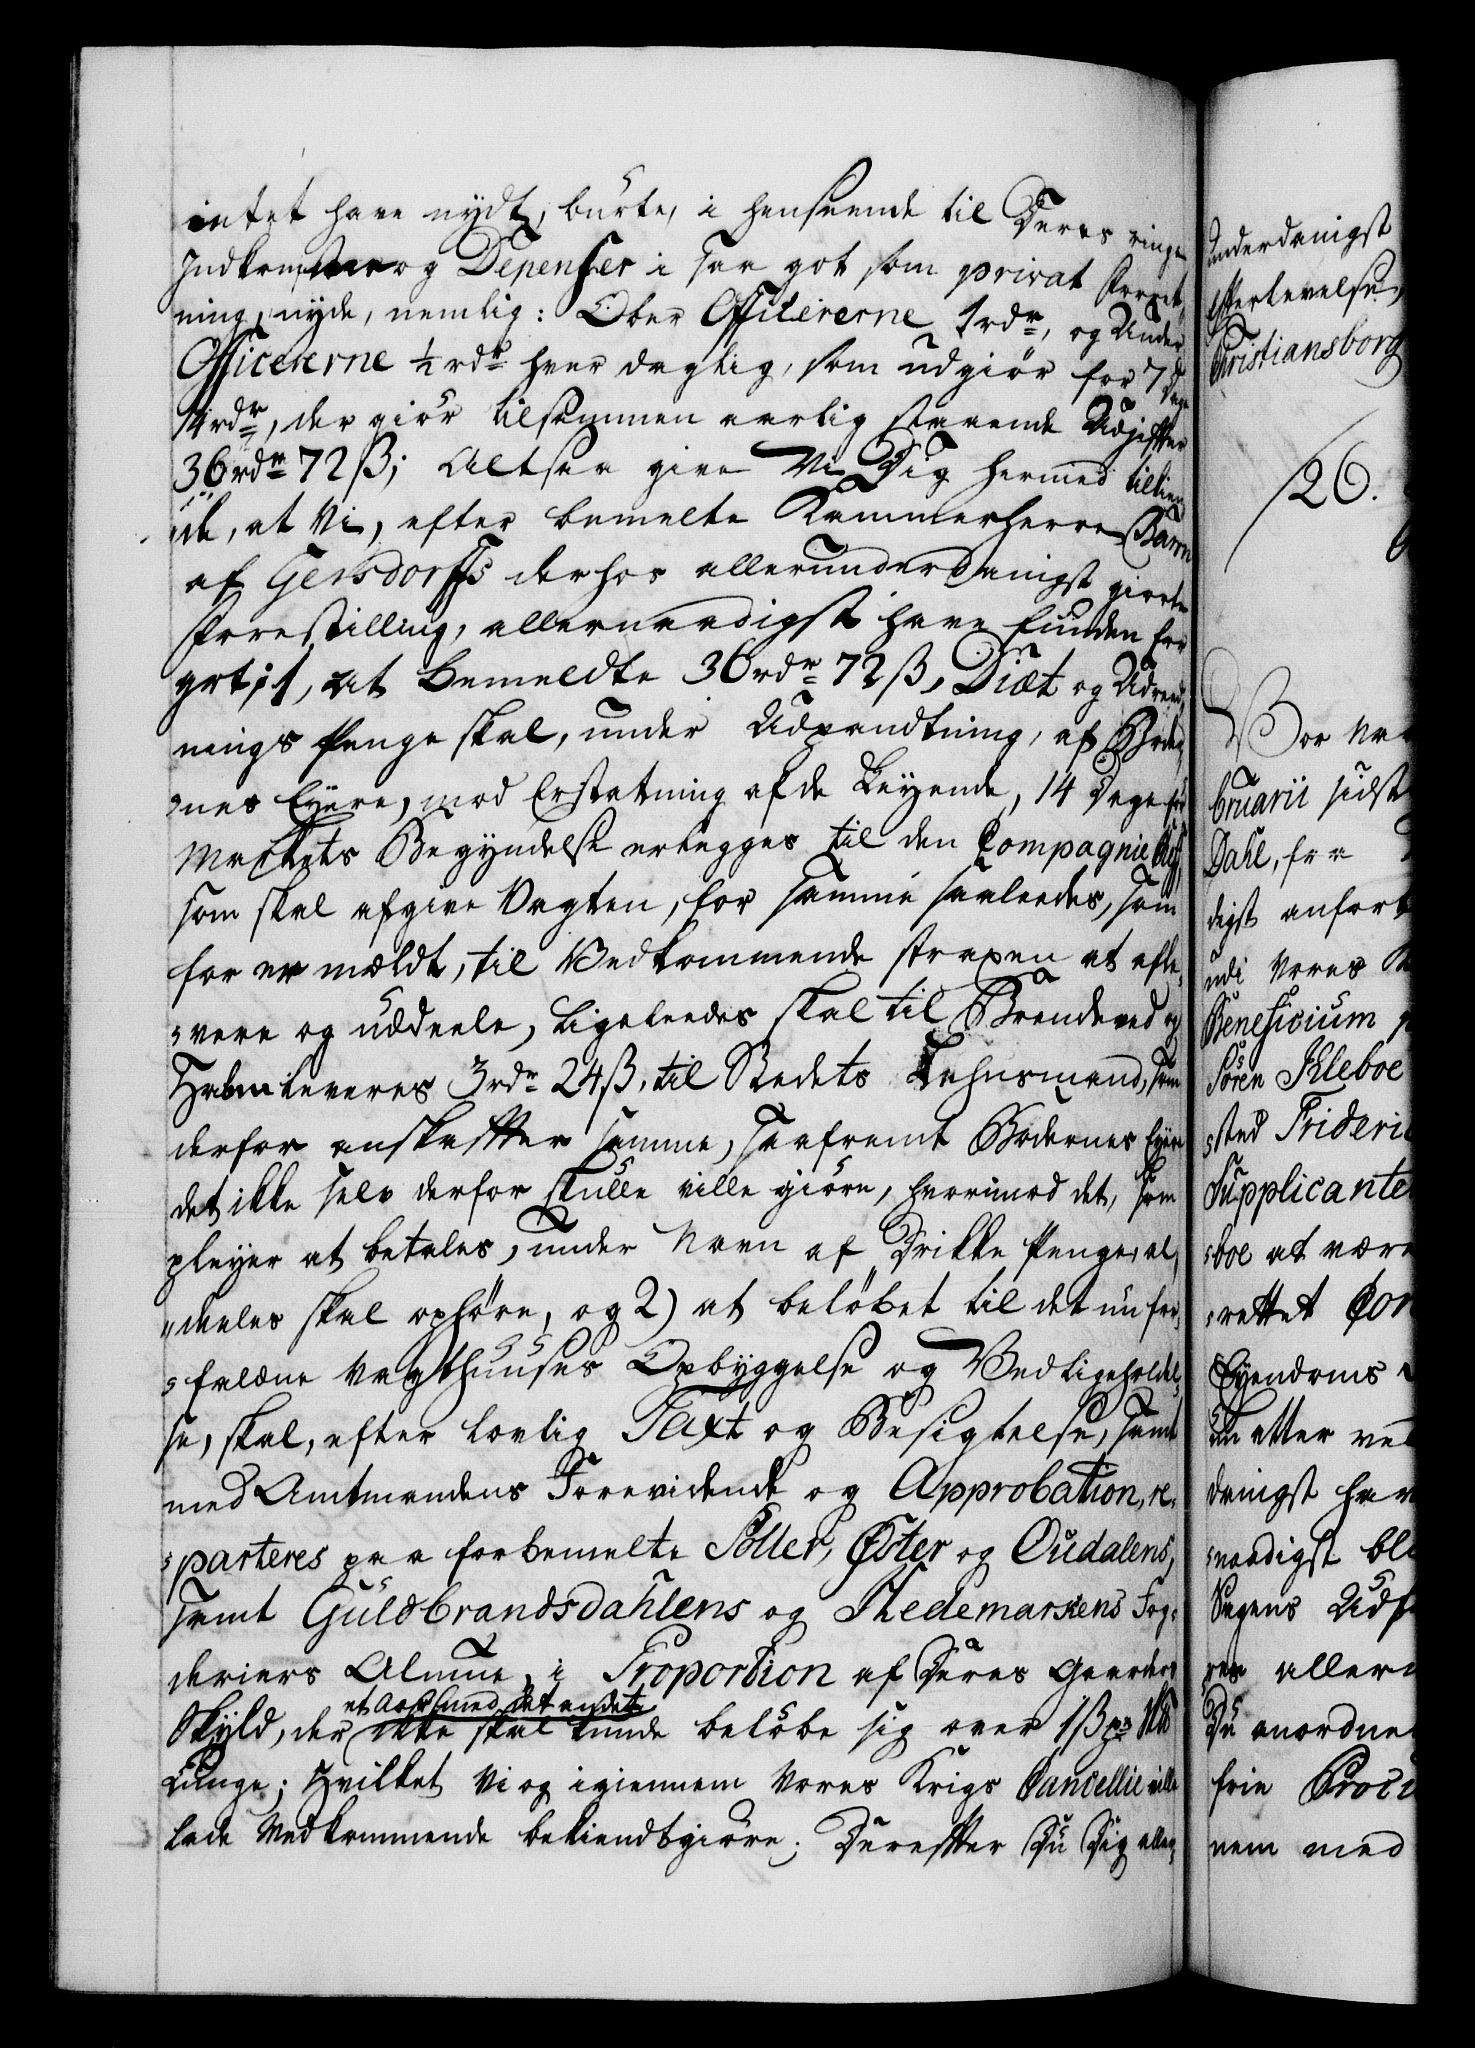 intet have nydt, burte, i henseende til Deres ringe
Indkomster og Depenser i saa got som privat Forret-
ning, nyde, nemlig: Ober Officererne 1 rdr, og Under
Officererne ½ rdr hver daglig, som udgiør for 7 Dage
14 rdr, der giør tilsammen aarlig staaende Udgifter
36 rdr 72 ß; Altsaa give Vi Dig hermed tilkien-
de, at Vi, efter bemelte Kammerherre Baron
af Gersdorffs derhos allerunderdanigst giorte
Forestilling, allernaadigst have funden for
got: 1, at bemeldte 36 rdr 72 ß, Diæt og Udred-
nings Penge skal, under Udpandtning, af Boder-
nes Eyere, mod Erstatning af de Leyende, 14 Dage før
Markets Begyndelse erlegges til den Compagnie
som skal afgive Vagten, for samme saaleedes, som
for er mældt, til Vedkommende straxen at afle-
vere og uddeele, Ligeleedes skal til Brændeved og
Halm leveres 3 rdr 24 ß, til Stedets Lehnsmand, som
derfor anskaffer samme, saafremt Bodernes Eyere
det ikke selv derfor skulle ville giøre, hvorimod det, som
pleyer at betales, under Navn af Drikke Penge, al-
deeles skal ophøre, og 2) at beløbet til det nu for-
faldne Vagthuuses Opbyggelse og Vedligeholdel-
se, skal, efter lovlig Taxt og Besigtelse, samt
med Amtmandens Forevidende og Approbation, re-
parteres paa forbemelte Soller, Øster og Oudalens,
samt Guldbrandsdahlens og Hedemarkens Fog-
deriers Almue, i Proportion af Deres Gaarders
et Aar mod det andet
Skyld, der ikke skal kunde beløbe sig over 1 ß pr
Tunge; Hvilket Vi og igiennem Vores Krigs Cancellie ville
lade Vedkommende bekiendtgiøre. Derefter Du Dig aller-
underdanigst
efterlevelse,
Christiansborg
126.
Vor
bruarii sidst
Dahl, fra
digst anført
udi Vores
Beneficium
Søren Kleboe
sted Frideric
Supplicante
boe at være
rettet Con
Eyendoms
un atter ved
danigst har
naadigst bl
Sagens Udf
res aller
Du anordne
frie Proc
nem med